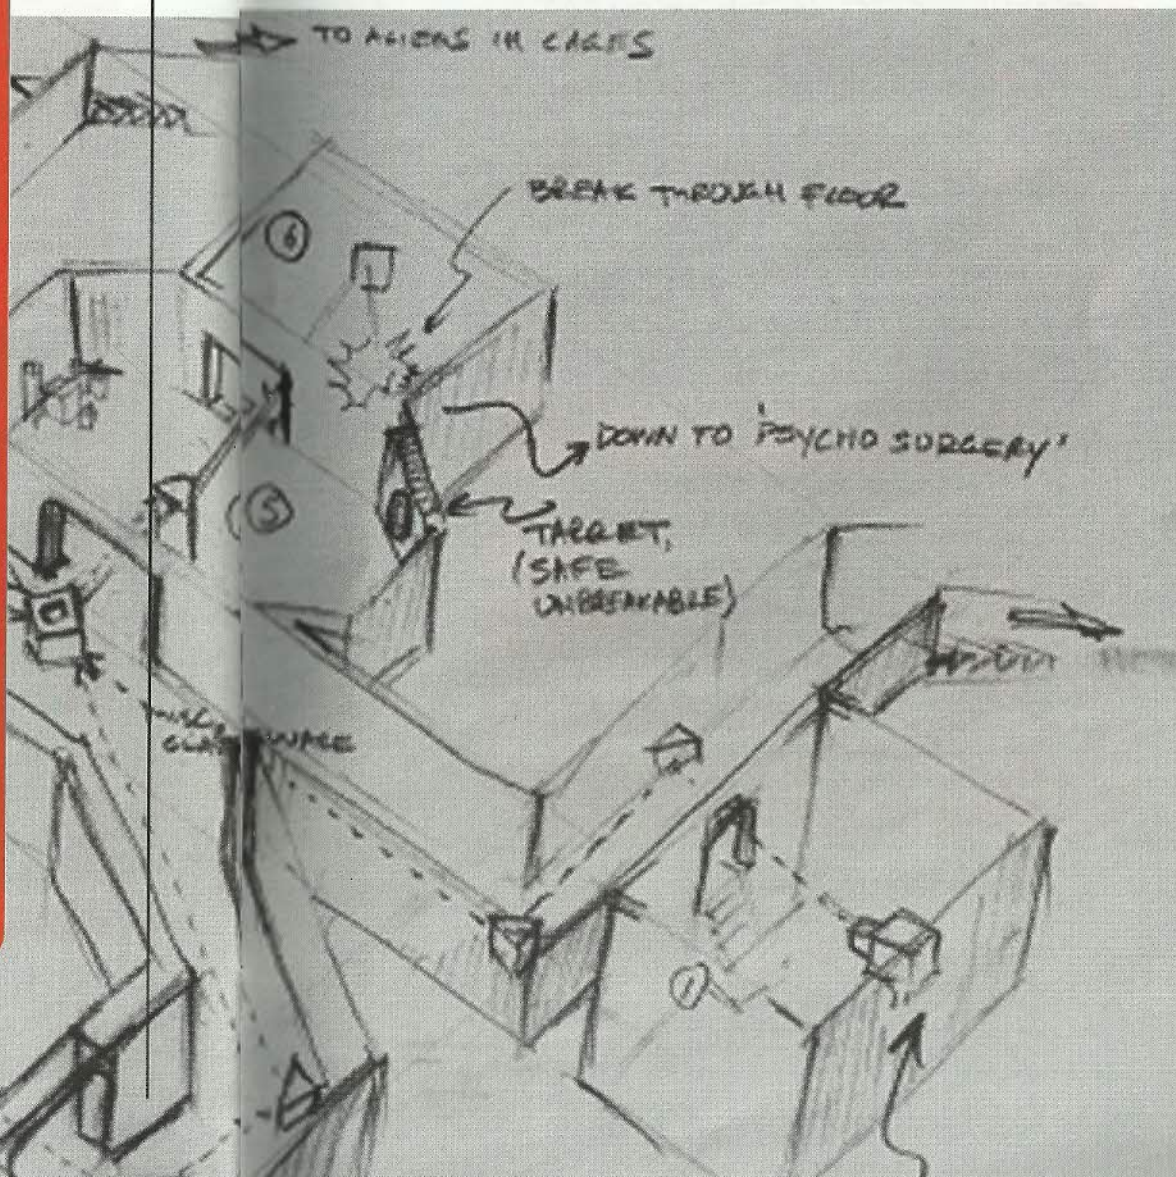 TO ALIENS IN CAGES
BREAK THROUGH FLOOR
6
DOWN TO 'PSYCHO SURGERY'
5
TARGET,
(SAFE
UNBREAKABLE)
MISC,
1